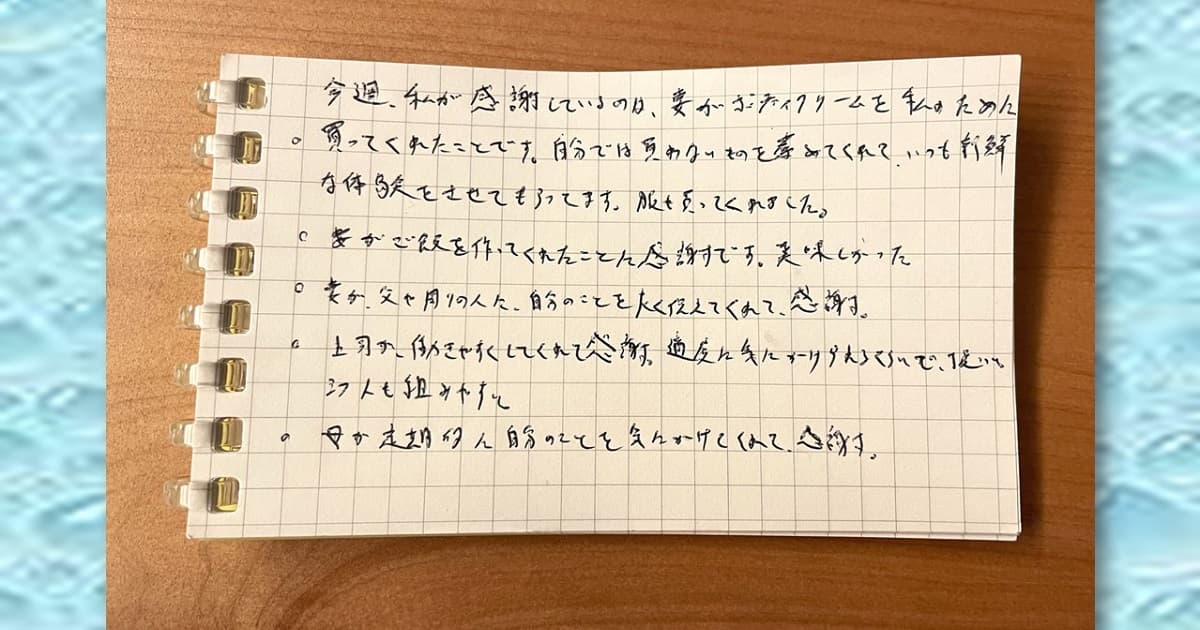 今週、私が感謝しているのは、妻がボディクリームを私のために
○ 買ってくれたことです。自分では買わないものを薦めてくれて、いつも新鮮
な体験をさせてもらってます。服も買ってくれました。
○ 妻がご飯を作ってくれたことに感謝です。美味しかった
○ 妻が、父や周りの人に、自分のことをよく伝えてくれて、感謝。
○ 上司が、働きやすくしてくれて感謝。適度に気にかけ
人も組みやすい
○ 母が定期的に自分のことを気にかけてくれて、感謝。